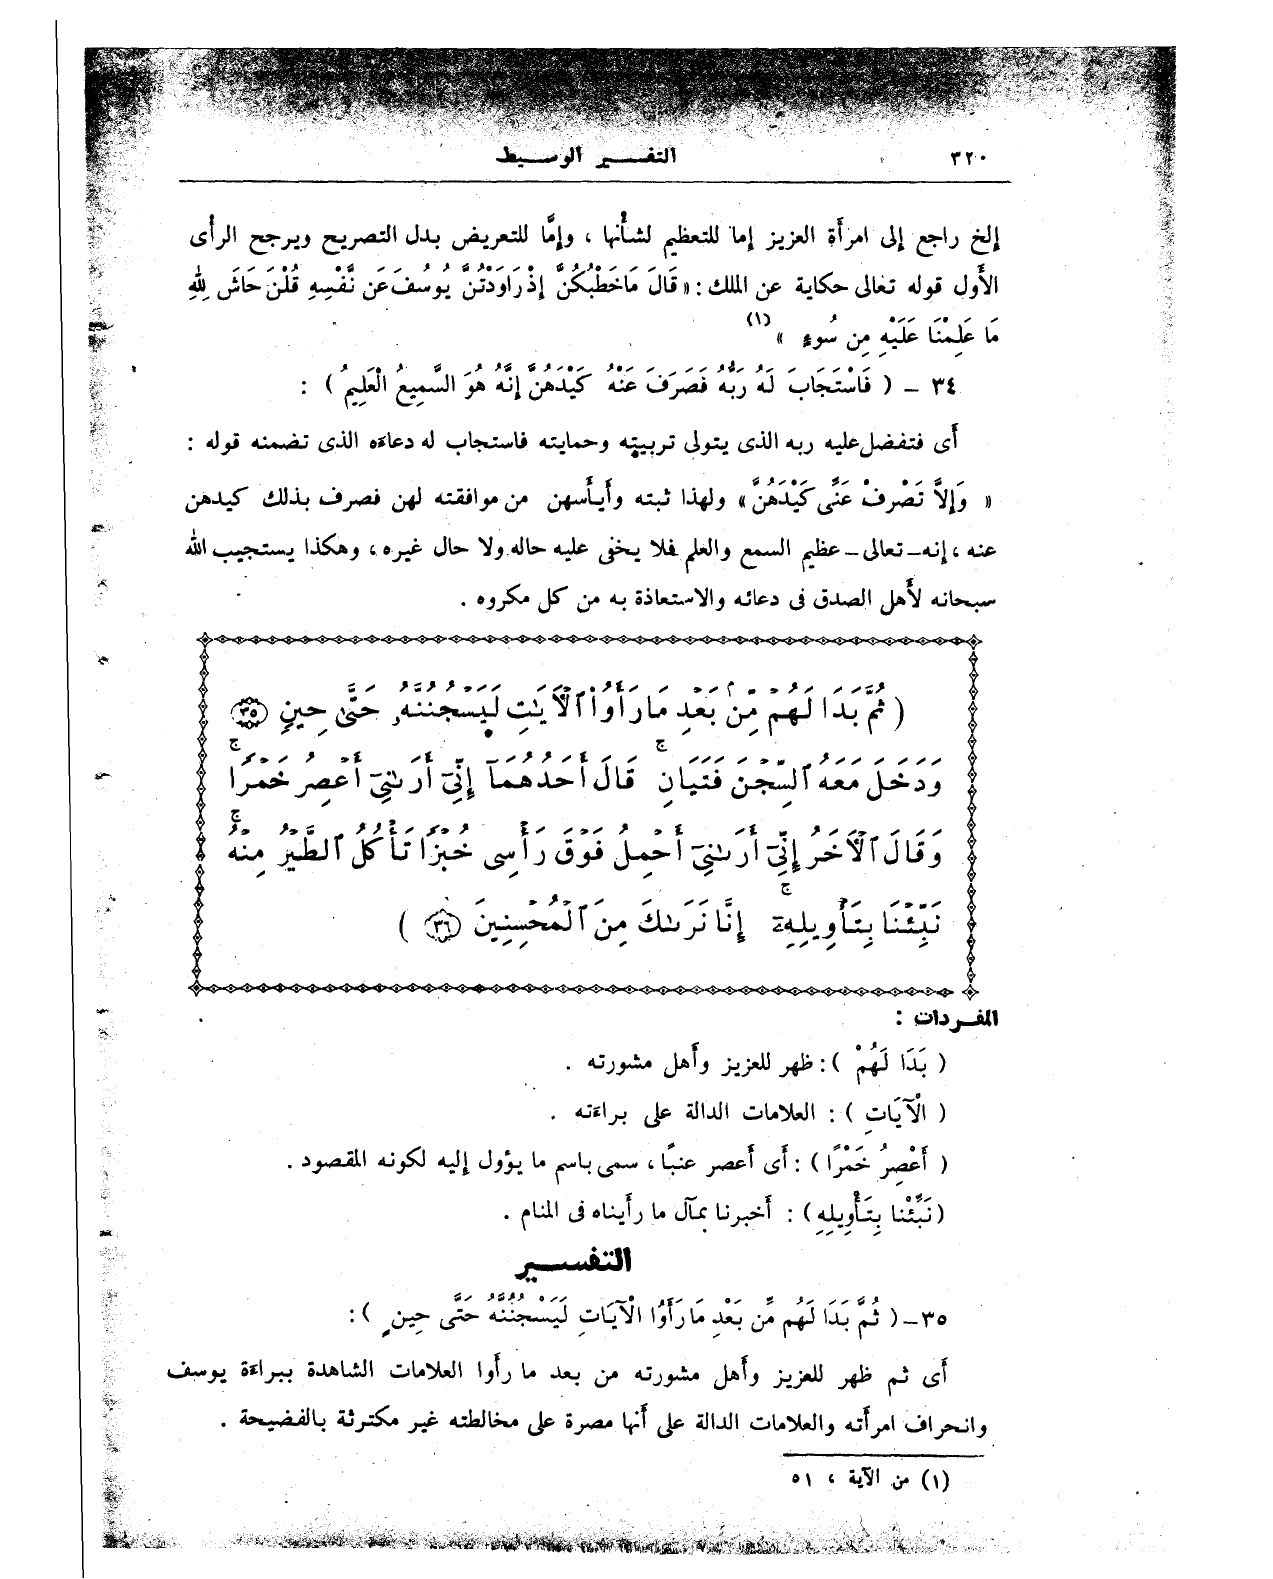 ٣٢٠ التفسير الوسيط
إلخ راجع إلى امرأة العزيز إما للتعظيم لشأنها ، وإمَّا للتعريض بدل التصريح ويرجح الرأى
الأول قوله تعالى حكاية عن الملك : « قَالَ مَا خَطْبُكُنَّ إِذْ رَاوَدْتُنَّ يُوسُفَ عَن نَّفْسِهِ قُلْنَ حَاشَ لِلهِ
مَا عَلِمْنَا عَلَيْهِ مِن سُوءٍ » (١)
٣٤ – ( فَاسْتَجَابَ لَهُ رَبُّهُ فَصَرَفَ عَنْهُ كَيْدَهُنَّ إِنَّهُ هُوَ السَّمِيعُ الْعَلِيمُ ) :
أى فتفضل عليه ربه الذى يتولى تربيته وحمايته فاستجاب له دعاءه الذى تضمنه قوله :
« وَإِلاَّ تَصْرِفْ عَنَّى كَيْدَهُنَّ » ولهذا ثبته وأيأسهن من موافقته لهن فصرف بذلك كيدهن
عنه ، إنه – تعالى – عظيم السمع والعلم فلا يخفى عليه حاله ولا حال غيره ، وهكذا يستجيب الله
سبحانه لأهل الصدق فى دعائه والاستعاذة به من كل مكروه .
( ثُمَّ بَدَا لَهُم مِّنۢ بَعْدِ مَا رَأَوُاْ ٱلْأٓيَٰتِ لَيَسْجُنُنَّهُۥ حَتَّىٰ حِينٍ ٣٥
وَدَخَلَ مَعَهُ ٱلسِّجْنَ فَتَيَانِ ۖ قَالَ أَحَدُهُمَآ إِنِّىٓ أَرَىٰنِىٓ أَعْصِرُ خَمْرًا ۖ
وَقَالَ ٱلْأٓخَرُ إِنِّىٓ أَرَىٰنِىٓ أَحْمِلُ فَوْقَ رَأْسِى خُبْزًا تَأْكُلُ ٱلطَّيْرُ مِنْهُ ۖ
نَبِّئْنَا بِتَأْوِيلِهِۦٓ ۖ إِنَّا نَرَىٰكَ مِنَ ٱلْمُحْسِنِينَ ٣٦ )
المفردات :
( بَدَا لَهُمْ ) : ظهر للعزيز وأهل مشورته .
( الْآيَاتِ ) : العلامات الدالة على براءته .
( أَعْصِرُ خَمْرًا ) : أى أعصر عنبًا ، سمى باسم ما يؤول إليه لكونه المقصود .
( نَبِّئْنا بِتَأْوِيلِهِ ) : أخبرنا بمآل ما رأيناه فى المنام .
التفسير
٣٥ – ( ثُمَّ بَدَا لَهُم مِّن بَعْدِ مَا رَأَوُا الْآيَاتِ لَيَسْجُنُنَّهُ حَتَّى حِينٍ ) :
أى ثم ظهر للعزيز وأهل مشورته من بعد ما رأوا العلامات الشاهدة ببراءة يوسف
وانحراف امرأته والعلامات الدالة على أنها مصرة على مخالطته غير مكترثة بالفضيحة .
(١) من الآية ، ٥١